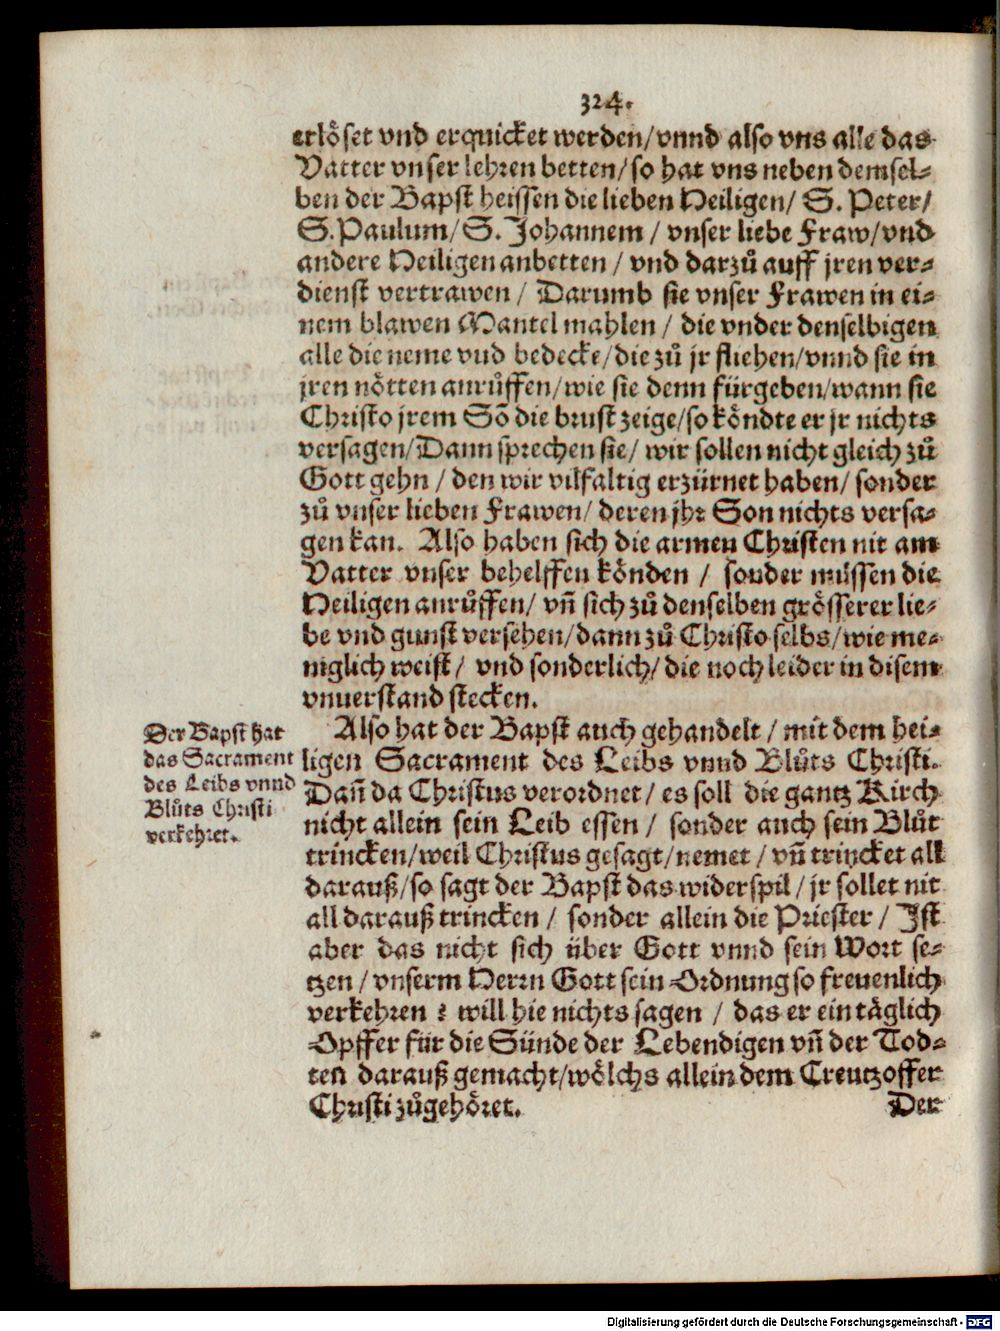 324.
erlöset vnd erquicket werden/ vnnd also vns alle das
Vatter vnser lehren betten/ so hat vns neben demsel-
ben der Bapst heissen die lieben Heiligen/ S. Peter/
S. Paulum/ S. Johannem / vnser liebe Fraw/ vnd
andere Heiligen anbetten / vnd darzů auff jren ver-
dienst vertrawen / Darumb sie vnser Frawen in ei-
nem blawen Mantel mahlen / die vnder denselbigen
alle die neme vnd bedecke/ die zů jr fliehen/ vnnd sie in
jren nötten anrůffen/ wie sie denn fürgeben/ wann sie
Christo jrem Sõ die brust zeige/ so köndte er jr nichts
versagen/ Dann sprechen sie/ wir sollen nicht gleich zů
Gott gehn / den wir vilfaltig erzürnet haben/ sonder
zů vnser lieben Frawen/ deren jhr Son nichts versa-
gen kan. Also haben sich die armen Christen nit am
Vatter vnser behelffen könden / sonder müssen die
Heiligen anrůffen/ vñ sich zů denselben grösserer lie-
be vnd gunst versehen/ dann zů Christo selbs/ wie me-
niglich weist/ vnd sonderlich/ die noch leider in disem
vnuerstand stecken.
Der Bapst hat
das Sacrament
des Leibs vnnd
Blůts Christi
verkehret.
Also hat der Bapst auch gehandelt / mit dem hei-
ligen Sacrament des Leibs vnnd Blůts Christi.
Dañ da Christus verordnet/ es soll die gantz Kirch
nicht allein sein Leib essen / sonder auch sein Blůt
trincken/ weil Christus gesagt/ nemet / vñ trincket all
darauß/ so sagt der Bapst das widerspil / jr sollet nit
all darauß trincken / sonder allein die Priester / Ist
aber das nicht sich über Gott vnnd sein Wort se-
tzen / vnserm Herrn Gott sein Ordnung so freuenlich
verkehren ? will hie nichts sagen / das er ein täglich
Opffer für die Sünde der Lebendigen vñ der Tod-
ten darauß gemacht/ wölchs allein dem Creutzoffer
Christi zůgehöret.
Der
Digitalisierung gefördert durch die Deutsche Forschungsgemeinschaft - DFG